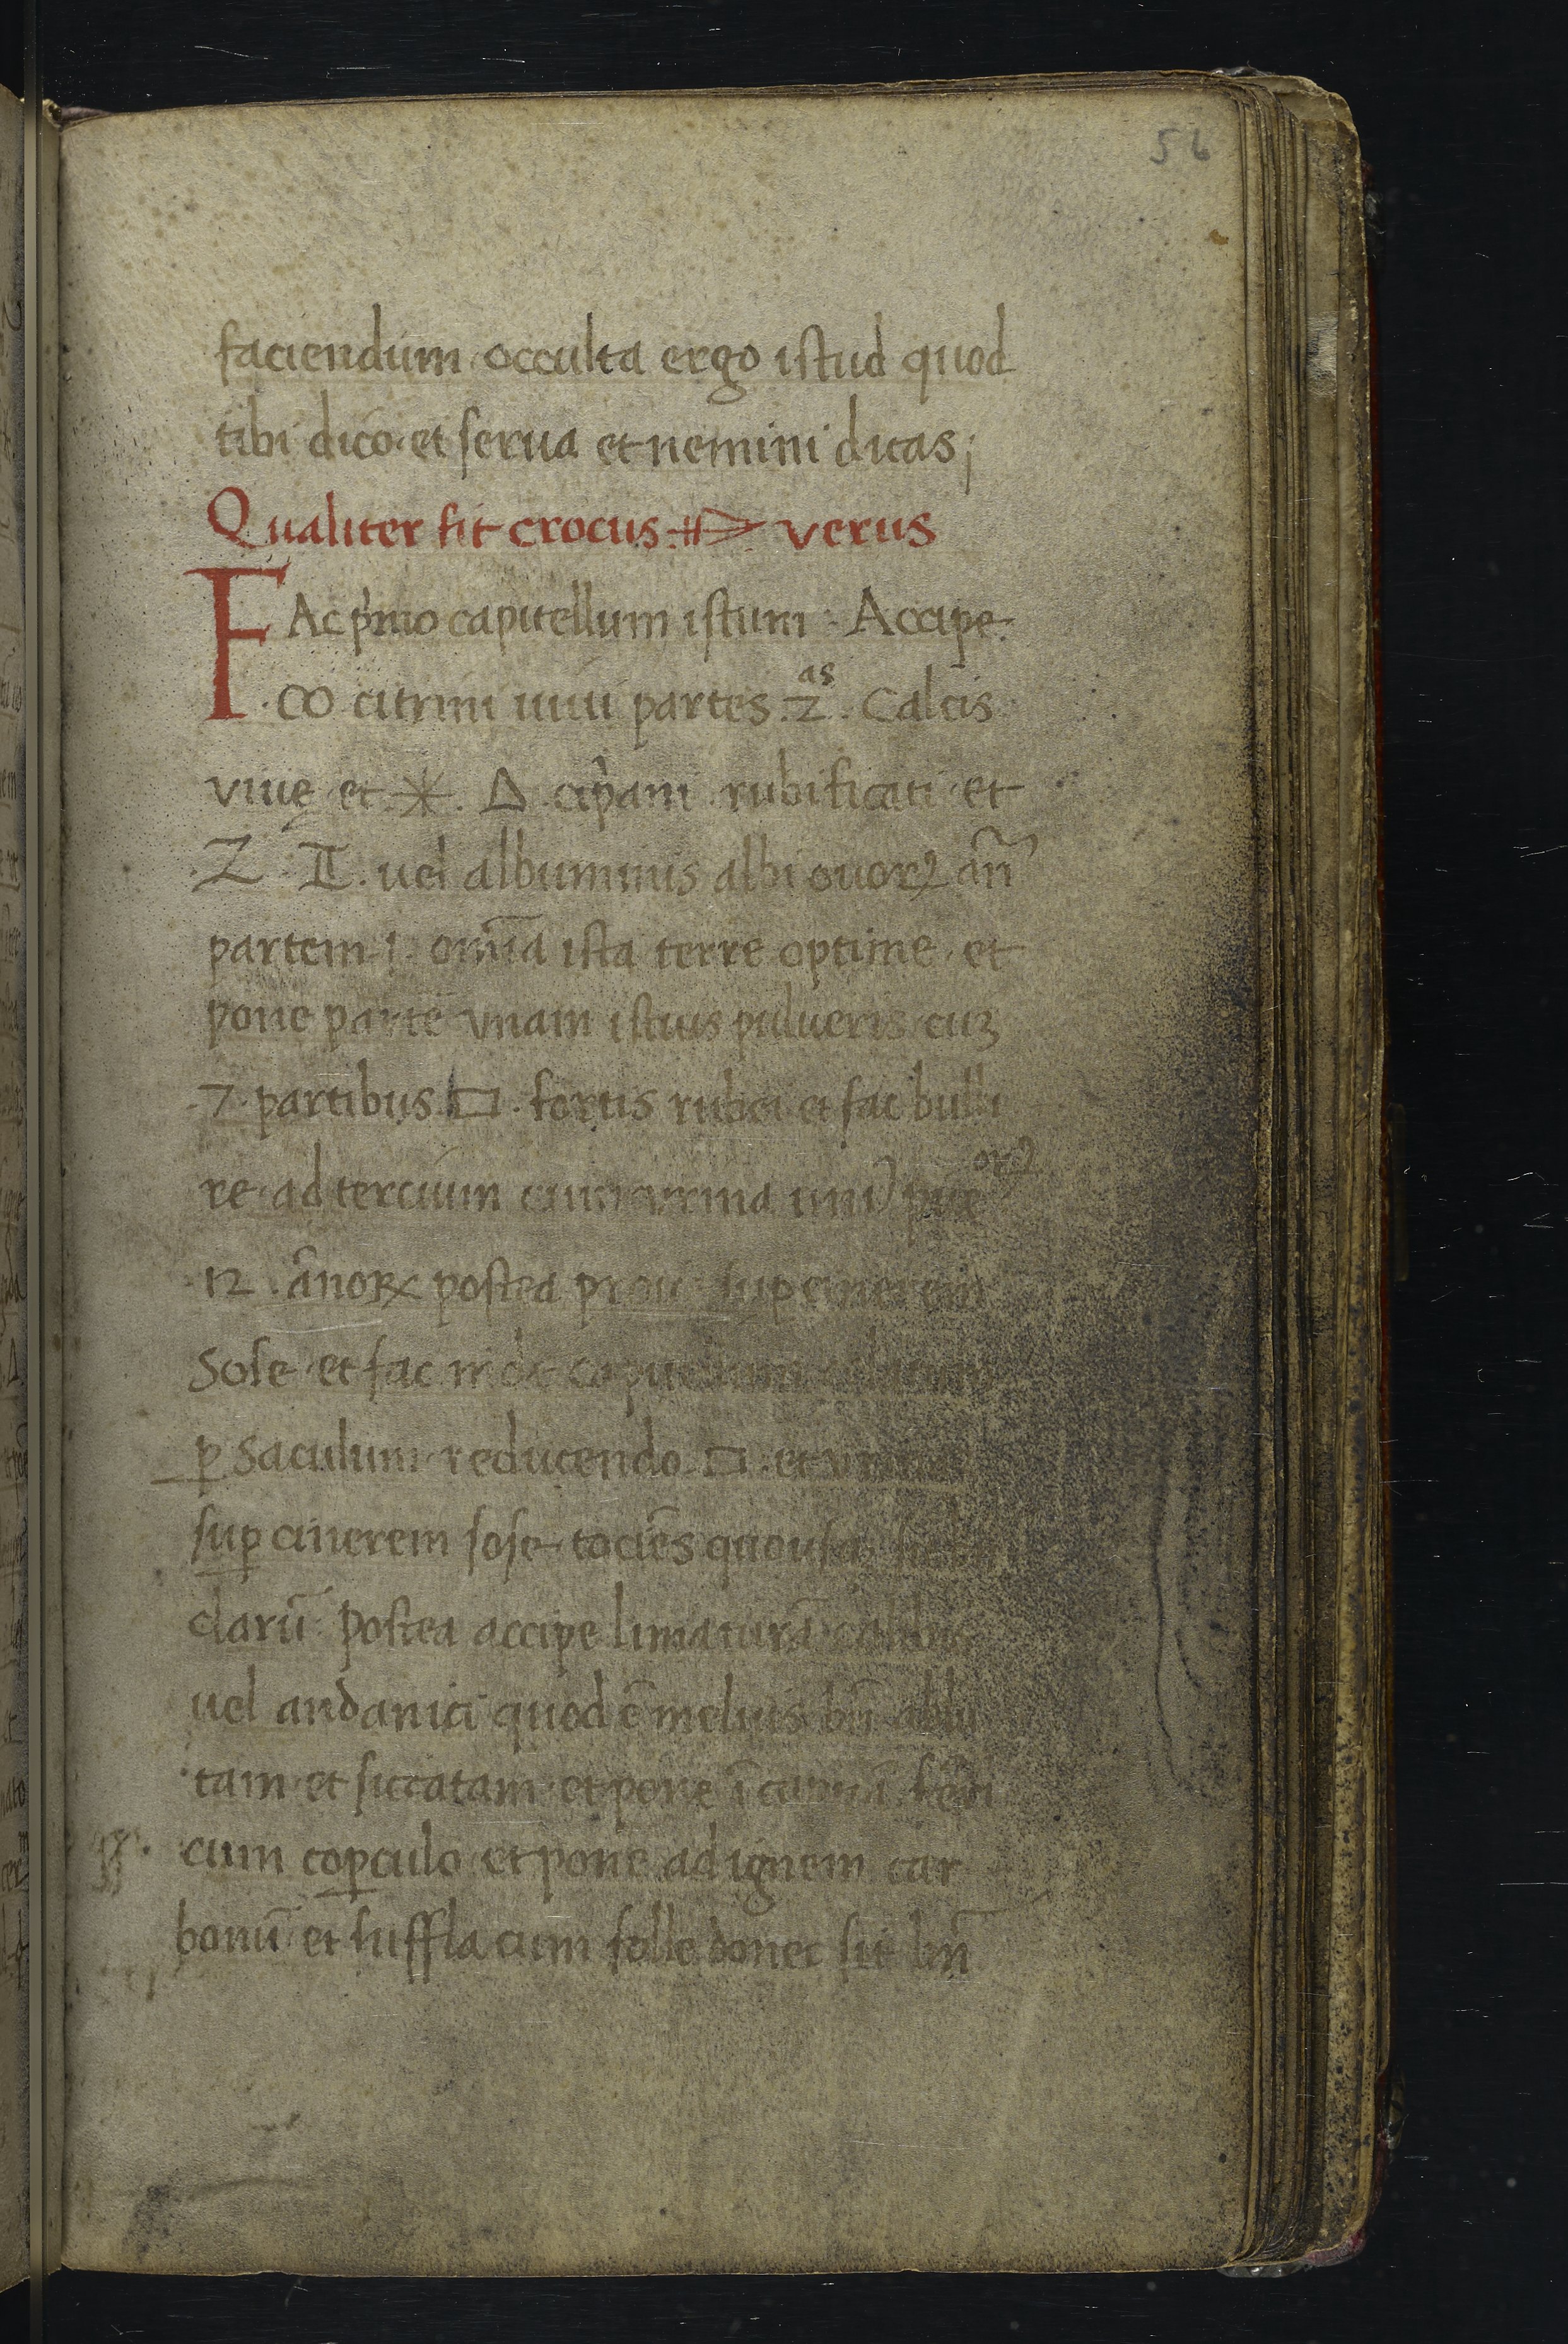 56
faciendum occulta ergo istud quod
tibi dico · et serua et nemini dicas;
Qualiter fit crocus verus
FAc pⁱmo capitellum istum · Accipe
· ꝏ · citrini uiui partes · 2ᵃˢ · Calcis
viuę et · ✳ · Δ · cipⁱani rubificati et
Z · II · uel albuminis albi ouoꝝ añ
partem · i · om̄ia ista terre optime · et
pone partē vnam istius pulueris cuꝫ
· 7 · partibus · □ · fortis rubei et fac bulli
re ad tercium cum vrina
· 12 · ānoꝝ postea
Sose · et fac inde
ꝑ saculum reducendo · □ · et vrinam
suꝑ cinerem sose tociēs quousqꝫ
clarū · postea accipe limaturā
uel andanici quod ē melius bn̄ ablu
tam · et siccatam · et pone ī
cum coꝑculo et pone ad ignem car
bonū et suffla cum folle donec sit